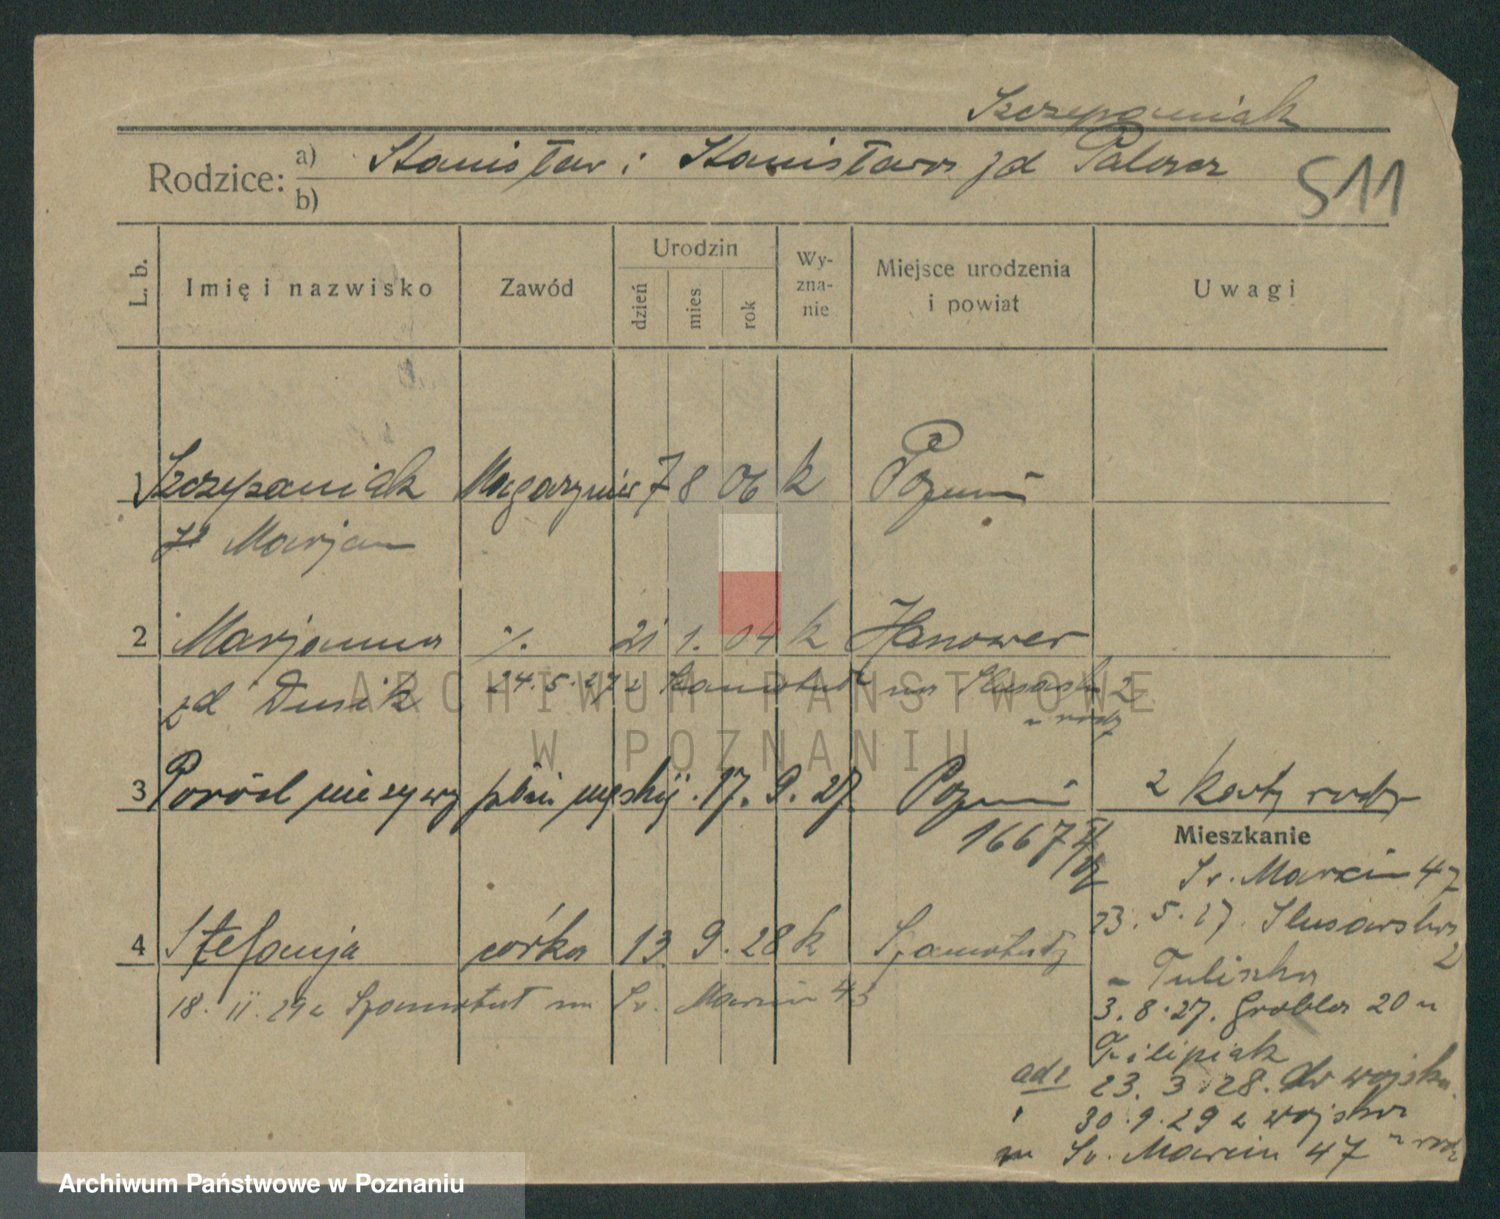 Szczepaniak
Rodzice: a) Stanisław i Stanisława zd Palacz
b)
S11
L. b. Imię i nazwisko Zawód Urodzin dzień mies. rok Wy-zna-nie Miejsce urodzenia i powiat Uwagi
1 Szczepaniak Magazynier 7 8 06 k Poznań
Marjan
2 Marjanna %. 21 1. 04 k Hanower
zd Dusik 24.5.27 z Szamotuł na Slusarska 2
3 Poród nieżywy płci męskij. 17. 9. 27 Poznań 2 karty rodz
1667
Mieszkanie
Sw. Marcin 47
23. 5. 27. Slusarska 2
4 Stefanja córka 13 9. 28 k Szamotuły
- Tuliszka
18. II. 29 z Szamotuł na Sw. Marcin 43
3. 8. 27. Grobla 20 u
Filipiak
ad 1 23. 3. 28. do wojska
30. 9. 29 z wojska
na Sw. Marcin 47
ARCHIWUM PAŃSTWOWE
W POZNANIU
Archiwum Państwowe w Poznaniu